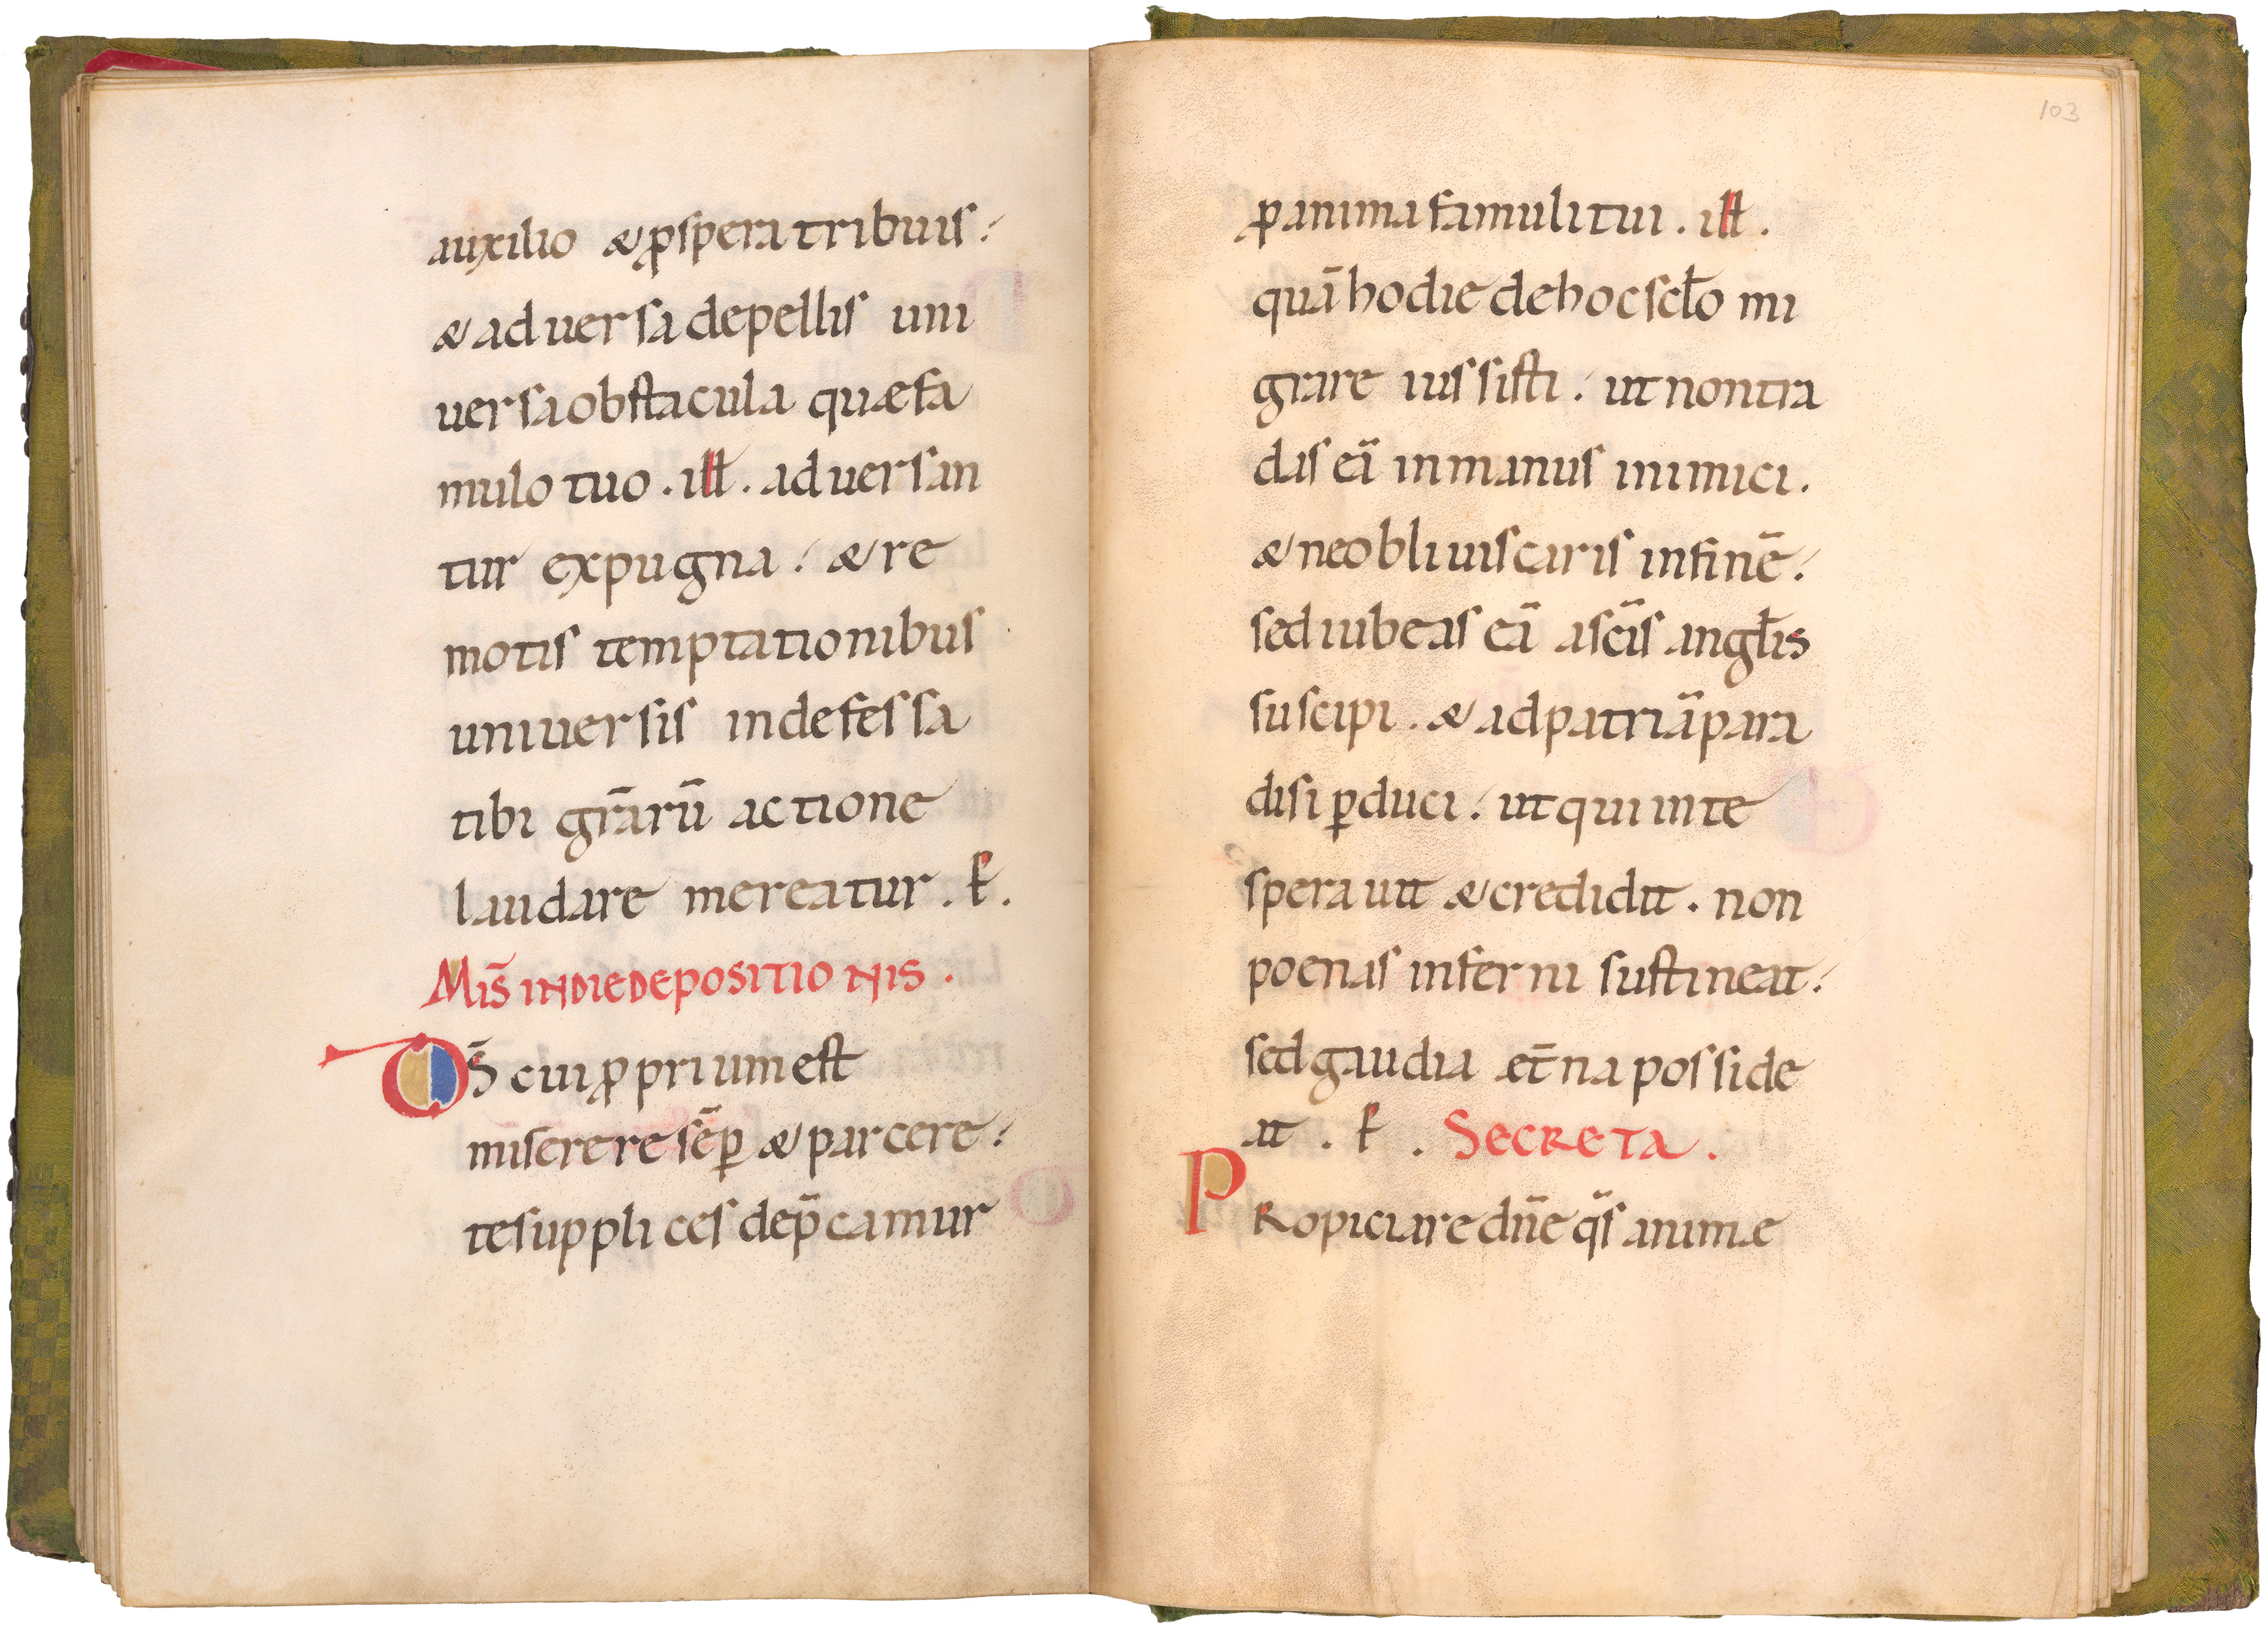 auxilio & ꝓspera tribuis :
& aduersa depellis uni
uersa obstacula quæ fa
mulo tuo . ilł . aduersan
tur expugna : & re
motis temptationibus
uniuersis indefessa
tibi gr̄arū actione
laudare mereatur . P̄ .
MIS̄ IN DIE DEPOSITIONIS .
DS̄ cui ꝓprium est
miserere sēꝑ & parcere :
te supplices dep̄camur
103
ꝓ anima famuli tui . ilł .
quā hodie de hoc scło mi
grare iussisti : ut non tra
das eā in manus inimici .
& ne obliuiscaris in finē :
sed iubeas eā a sc̄is angłis
suscipi . & ad patriā para
disi ꝑduci : ut qui in te
sperauit & credidit . non
poenas inferni sustineat :
sed gaudia æt̄na posside
at . P̄ . SECRETA .
PRopiciare dn̄e q̄s animæ